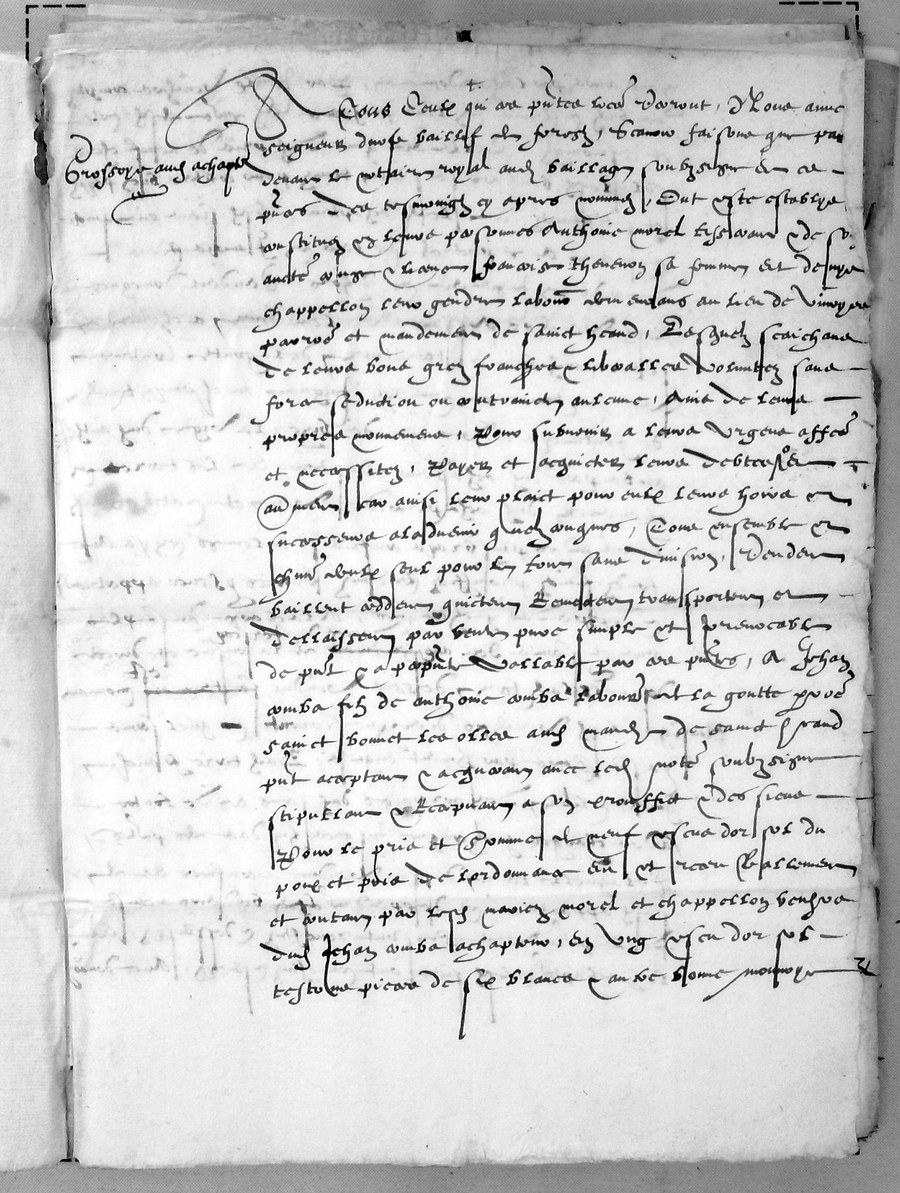 A Tous Ceulx qui ces pntes lres verront, Nous anne
seigneur durfe baillif de forestz, Scavoir faisons que par
Grossoye aud achapteur
devant le notaire royal aud bailliage soubzsigne et en ce
pnces des tesmoingz cy apres nommez, Ont este establys
constituez en leurs personnes Anthoine morel et de sa
aucte conge et licence francoise thevenon sa femme et denys
chappellon leur gendre laboureurs demeurans au lieu de
parroe et mandement de sainct heand, Lesquelz saichans
de leurs bons grez franches et liberalles voluntez sans
force seduction ou contraincte aulcune, Ains de leurs
propres mouvemens, Pour subvenir a leurs urgens affes
et necessitez, Payer et acquicter leurs debtes et
aultrement car ainsi leur plaict pour eulx leurs hoirs et
successeurs a ladvenir quelzconques, Tous ensemble et
chun deulx seul pour le tout sans division, Vendent
baillent ceddent quictent Remettent transportent et
dellaissent par vente pure simple et irrevocable
de pnt et a perpetuite vallable par ces pntes, A Jehan
comba filz de anthoine comba laboureur de la goutte parroe
sainct bonnet les olles aud mandemt de sainct heand
pnt acceptant et acquerant avec led note soubzsigne
stipullant et Recepvant a son prouffict et des siens
Pour le pris et Somme de neuf escus dor sol du
poix et pris de lordonnance Eu et receu Reallement
et contant par lesd mariez morel et chappellon vendeurs
dud Jehan comba achapteur, En ung escu dor sol
testons pieces de six blancs et aultre bonne monnoye